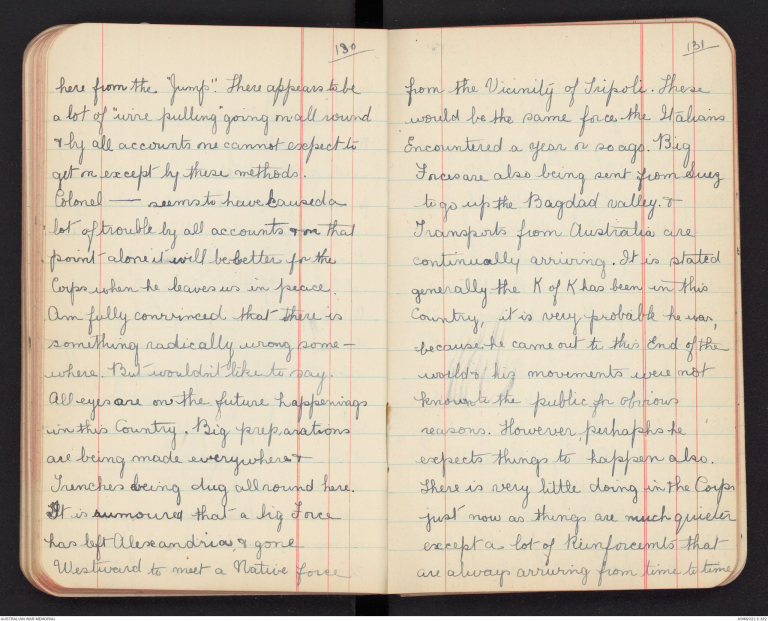 130
here from the "Jump". There appears to be
a lot of "wire pulling" going on all round
& by all accounts one cannot expect to
get on except by these methods.
Colonel — seems to have caused a
lot of trouble by all accounts & on that
point alone it will be better for the
Corps when he leaves us in peace.
Am fully convinced that there is
something radically wrong some-
where. But wouldn't like to say.
All eyes are on the future happenings
in this Country. Big preparations
are being made everywhere &
Trenches being dug all round here.
It is rumoured that a big Force
has left Alexandria, & gone
Westward to meet a Native force
131
from the Vicinity of Tripoli. These
would be the same force the Italians
Encountered a year or so ago. Big
Forces are also being sent from Suez
to go up the Bagdad valley. &
Transports from Australia are
continually arriving. It is stated
generally the K of K has been in this
Country, it is very probable he was,
because he came out to this End of the
world & his movements were not
known to the public for obvious
reasons. However, perhaphs he
expects things to happen also.
There is very little doing in the Corps
just now as things are much quieter
except a lot of Reinforcemts that
are always arriving from time to time
AUSTRALIAN WAR MEMORIAL